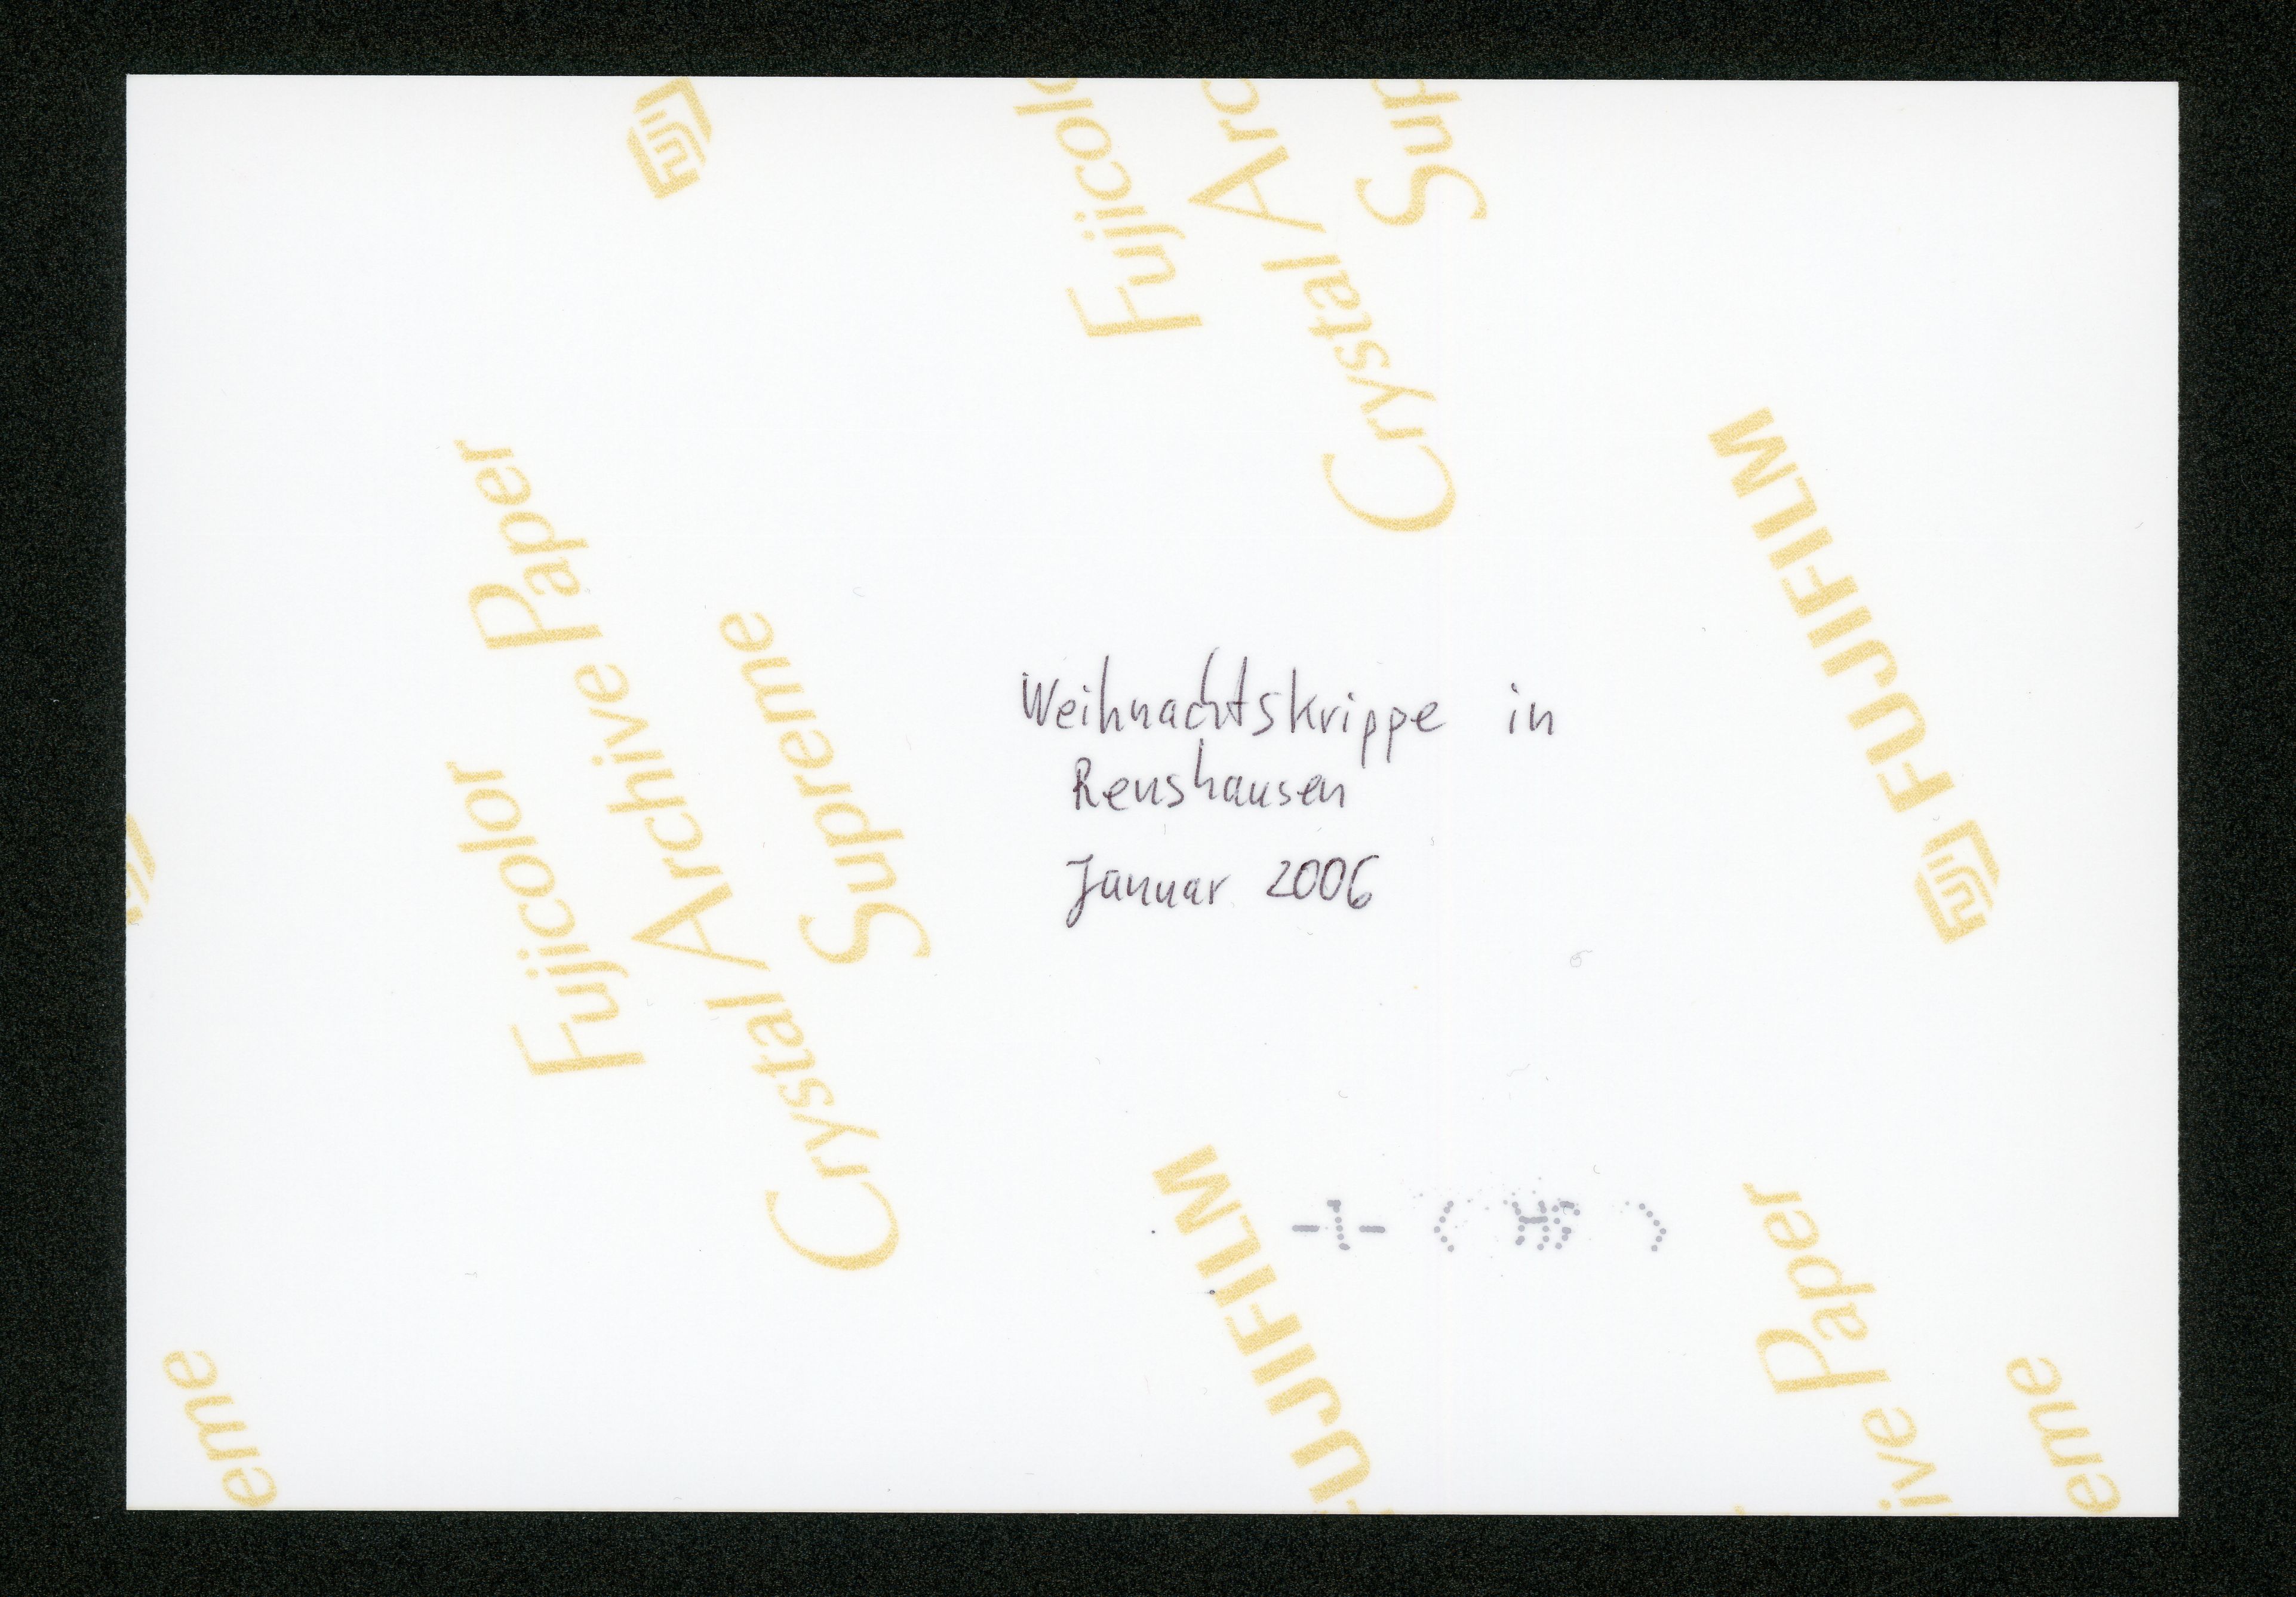 Fujicolor
Crystal Archive Paper
Supreme
Fujicolo
Crystal Arc
Sup
FUJIFILM
FUJI
Weihnachtskrippe in
Renshausen
Januar 2006
FUJIFILM
ive Paper
eme
eme